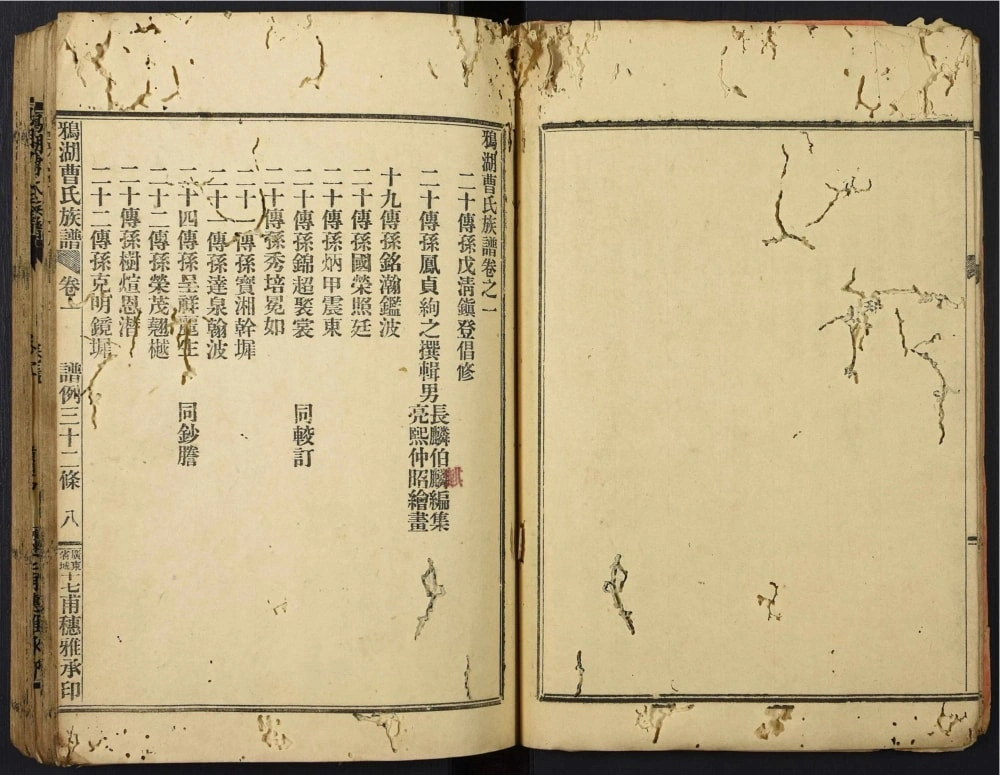 鴉湖曹氏族譜卷之一
二十傳孫戊清鎭登倡修
二十傳孫鳳貞絢之撰輯男長麟伯麟編集
亮熙仲昭繪畫
十九傳孫銘瀚鑑波
二十傳孫國榮照廷
二十傳孫炳甲震東
二十傳孫錦超褧裳 同較訂
二十傳孫秀培冕如
二十一傳孫寶湘幹墀
二十一傳孫達泉翰波
二十四傳孫呈祥 生 同鈔謄
二十二傳孫榮茂翹樾
二十傳孫樹煊恩潛
二十二傳孫克明鏡墀
鴉湖曹氏族譜 卷 譜例三十二條 八 廣東省城十七甫穗雅承印